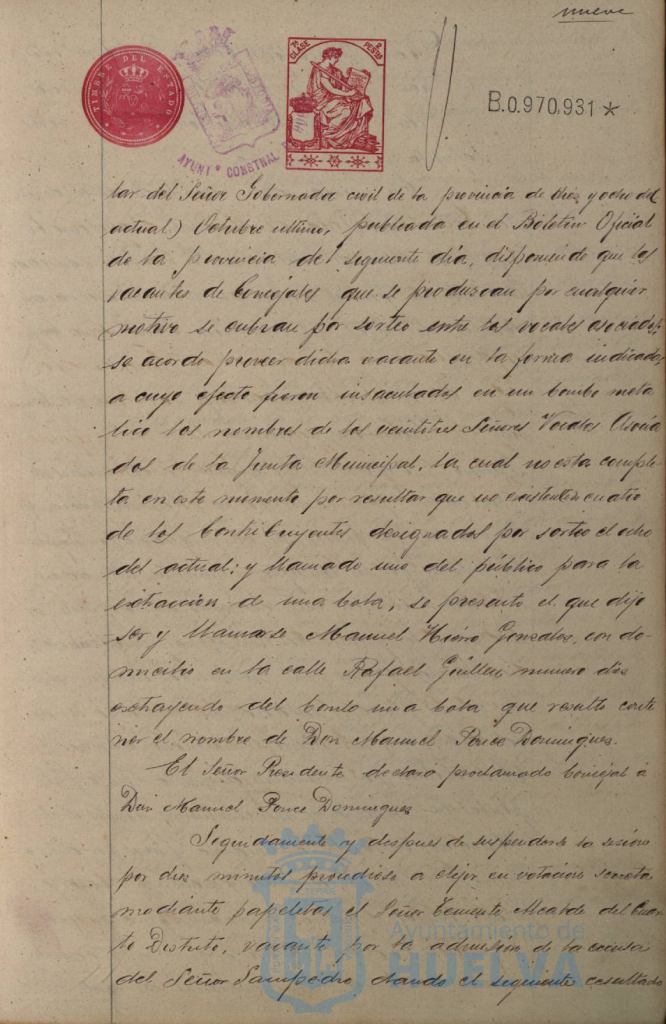 nueve
TIMBRE DEL ESTADO
7ª CLASE
PESETAS
AYUNTº CONSTNAL
B.0.970,931 *
lar del Señor Gobernador civil de la provincia de diez y ocho del
actual) Octubre ultimo, publicada en el Boletin Oficial
de la provincia del siguiente dia, disponiendo que las
vacantes de Concejales que se produzcan por cualquier
motivo se cubran por sorteo entre los vocales asociados,
se acordo proveer dicha vacante en la forma indicada,
a cuyo efecto fueron insaculados en un bombo meta
lico los nombres de los veintitres Señores Vocales Asocia
dos de la Junta Municipal, la cual no esta comple
ta en este momento por resultar que no existenten cuatro
de los Contribuyentes designados por sorteo el ocho
del actual; y llamado uno del público para la
extraccion de una bola, se presento el que dijo
ser y llamarse Manuel Hierro Gonzalez, con do-
micilio en la calle Rafael Guillen, numero dos
extrayendo del bombo una bola que resulto conte
ner el nombre de Don Manuel Ponce Dominguez.
El Señor Presidente declaró proclamado Concejal á
Don Manuel Ponce Dominguez
Seguidamente y despues de suspenderse la sesion
por diez minutos procediose a elejir en votacion secreta
mediante papeletas el Señor Teniente Alcalde del Cuar
to Distrito, vacante por la admision de la excusa
del Señor Sampedro dando el siguiente resultado
Ayuntamiento de
HUELVA